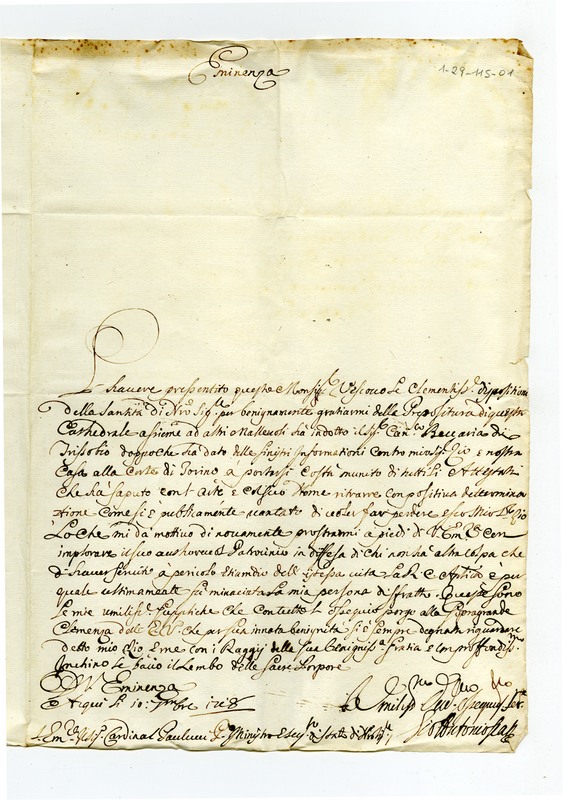 Eminenza
1-29-115-01
L'havere pressentito questo Monsig.r Vescovo le Clementiss.e dispositioni
della Santità di Nro Sig.re per benignamente gratiarmi della Prepositura di questa
Cathedrale assieme ad altri Malevoli ha indotto il Sig.r Can.co Beccaria di
doppoche ha dato delle sinistri informationi contro mio Sig.r Zio e nostra
Casa alla Corte di Torino a portarsi costà munito di tutti li Attestati
che ha saputo con l'Arte e col suo Nome ritrarre con positiva determina
tione come si è pubblicamente vantato di voler far perdere esso Mio Sig.r Zio
Lo che mi dà motivo di novamente prostrarmi a piedi di V. Em.za con
implorare il suo autorevol Patrocinio in diffesa di chi non ha altra colpa che
d'haver servito à pericolo etiamdio dell'istessa vita la S. e per
quale ultimamente fù minaciata la mia persona di sfratto. Queste sono
le mie umiliss.e suppliche che con tutto l'ossequio porgo alla Sopragrande
Clemenza dell'E.V. che per sua innata benignità si è sempre degnata riguardare
detto mio Zio e me con i Raggij della sua Benigniss.a Gratia e con profondiss.mo
Inchino le bacio il Lembo delle Sacre Porpore
D. V. Eminenza
Acqui li 10: 1728
Umiliss.o Dev.mo Ossequios.mo Ser.re
Antonio
Em.o Sig.r Cardinal Paulucci P.o Ministro